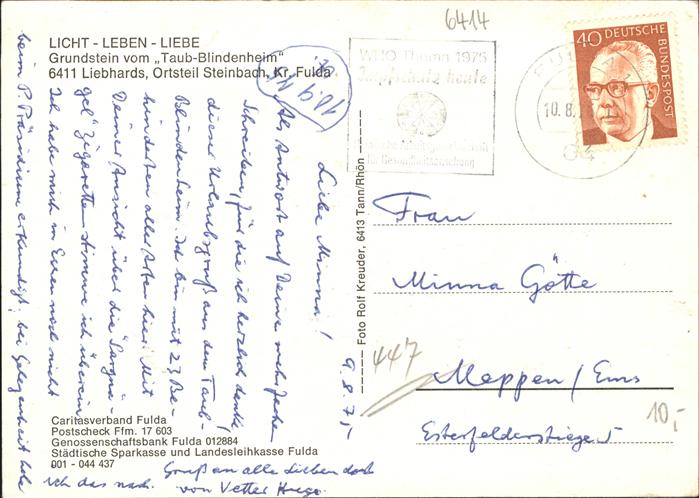 6414
LICHT - LEBEN - LIEBE
Grundstein vom „Taub-Blindenheim"
6411 Liebhards, Ortsteil Steinbach, Kr. Fulda
WHO Thema 1975
Impfschutz heute
für Gesundheitserziehung
10.8.
64
40 DEUTSCHE BUNDESPOST
10.9.
9.8.75
Liebe Minna!
Als Antwort auf Deine mehrfachen
Schreiben, für die ich herzlich danke
dieser Urlaubsgruß aus dem Taub-
Blindenheim. Ich bin mit 23 Be-
hinderten aller Arten hier. Mit
Deiner Ansicht über die "Sargnä-
gel" Zigaretten stimme ich überein
Ich habe mich in Essen noch nicht
beim P. Präsidium erkundigt; bei Gelegenheit hole
ich das nach. Gruß an alle Lieben dort
von Vetter Hugo.
Foto Rolf Kreuder, 6413 Tann/Rhön
Frau
Minna Götte
447
Meppen/Ems
10,-
Esterfelderstiege 5
Caritasverband Fulda
Postscheck Ffm. 17 603
Genossenschaftsbank Fulda 012884
Städtische Sparkasse und Landesleihkasse Fulda
001 - 044 437